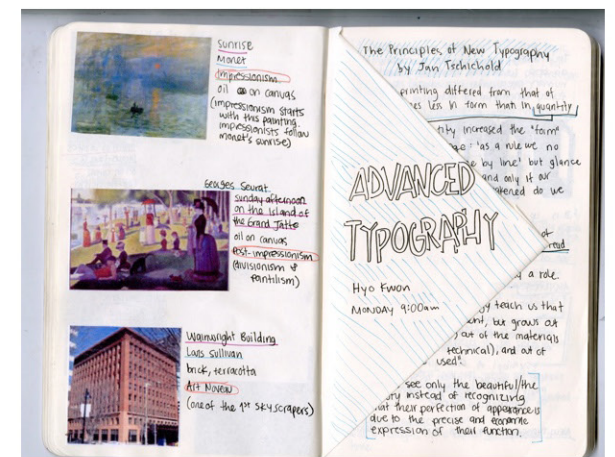 sunrise
Monet
Impressionism
oil on canvas
(impressionism starts
with this painting.
impressionists follow
monet's sunrise)
Georges Seurat
sunday afternoon
on the island of
the Grand Jatte
oil on canvas
Post-impressionism
(divisionism &
pantilism)
Wainwright Building
Lous Sullivan
brick, terracotta
Art Noveau
(one of the 1st skyscrapers)
The Principles of New Typography
by Jan Tschichold
printing differed from that of
less in form than in quantity
increased the "form"
"as a rule we no
by line" but glance
and only if our
do we
of
read
ADVANCED
TYPOGRAPHY
a role.
Hyo Kwon
MONDAY 9:00am
teach us that
but grows out
out of the materials
technical), and out of
used".
see only the beautiful/the
instead of recognizing
that their perfection of appearance is
due to the precise and economic
expression of their function.